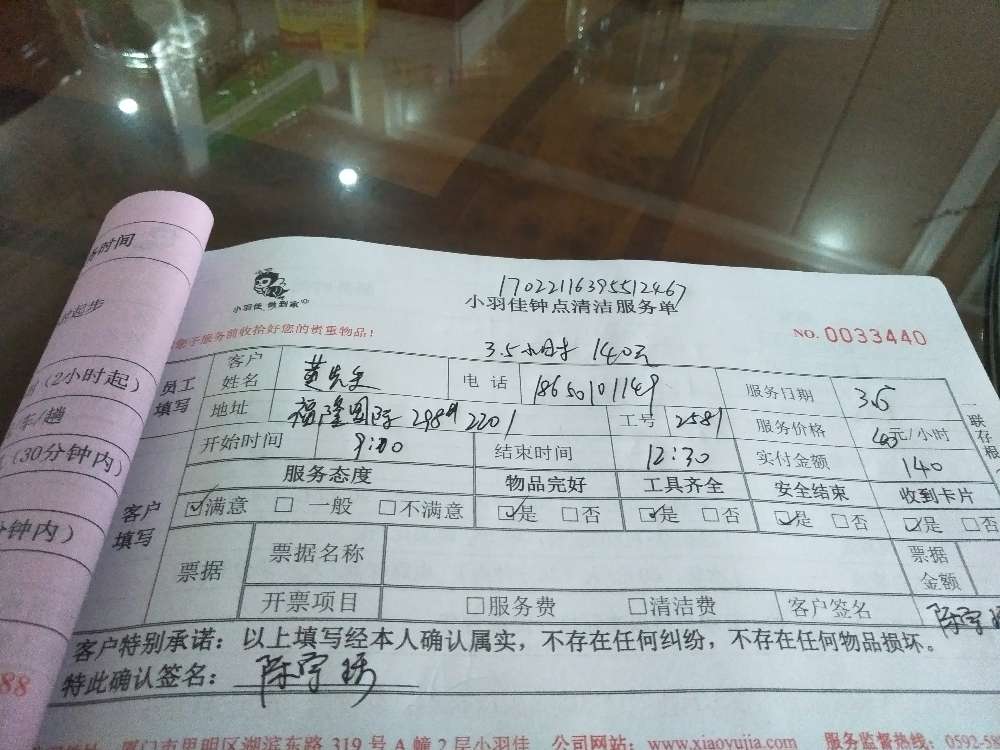 1702211639551 2467
小羽佳 做到家
小羽佳钟点清洁服务单
NO. 0033440
于服务前收拾好您的贵重物品!
3.5小时 140元
员工填写
客户姓名 黄先生 电话 18650101149 服务日期 3.5
地址 福隆国际 298# 2201 工号 2581 服务价格 40元/小时
开始时间 9:00 结束时间 12:30 实付金额 140
客户填写
服务态度 物品完好 工具齐全 安全结束 收到卡片
☑满意 □一般 □不满意 ☑是 □否 ☑是 □否 ☑是 □否 ☑是 □否
票据 票据名称 票据金额
开票项目 □服务费 □清洁费 客户签名 陈宇
客户特别承诺:以上填写经本人确认属实,不存在任何纠纷,不存在任何物品损坏。
特此确认签名: 陈宇
厦门市思明区湖滨东路 319 号 A 幢 2 层小羽佳 公司网站: www.xiaoyujia.com 服务监督热线: 0592-5
联存根
时间
起步
(2小时起)
车/趟
(30分钟内)
分钟内)
88